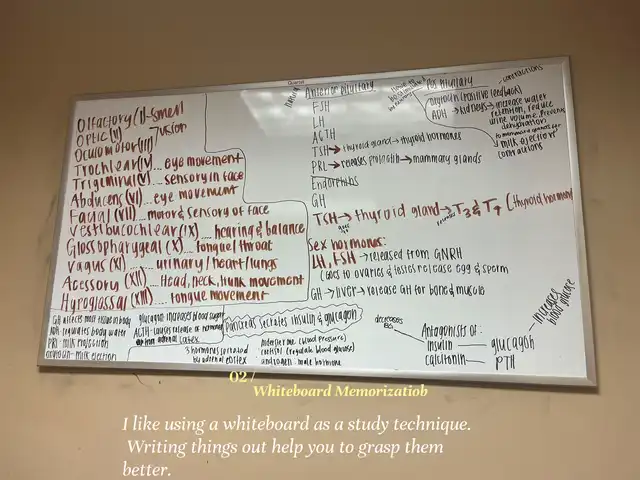 Quartet
Olfactory (I)-smell
Optic (II)
Oculomotor (III)
vision
Trochlear (IV)... eye movement
Trigeminal (V)... sensory in face
Abducens (VI)... eye movement
Facial (VII)... motor & sensory of face
Vestibulocochlear (IX)... hearing & balance
Glossopharyngeal (X)... tongue/throat
Vagus (XI)... urinary/heart/lungs
Acessory (XII)... Head, neck, trunk movement
Hypoglossal (XIII)... tongue movement
Anterior pituitary
FSH
LH
ACTH
TSH → thyroid gland → thyroid hormones
PRL → releases prolactin → mammary glands
Endorphins
GH
TSH → thyroid gland → T3 & T4 (thyroid hormone)
Sex hormones:
LH, FSH → released from GNRH
(goes to ovaries & testes release egg & sperm
GH → liver → release GH for bone & muscle
pituitary
contractions
oxytocin (positive feedback)
ADH → kidneys → increase water
retention, reduce
urine volume, prevents
dehydration
milk ejection/
contractions
GH affects most tissue in body
ADH-regulates body water
PRL-milk production
milk ejection
glucagon-increases blood sugar
ACTH-causes release of hormones
from adrenal cortex
Pancreas secretes insulin & glucagon
3 hormones secreted
by adrenal cortex
aldosterone (blood pressure)
cortisol (regulate blood glucose)
androgen-male hormone
decreases
BG
Antagonists of:
insulin — glucagon
calcitonin — PTH
increases
blood glucose
02/
Whiteboard Memorizatiob
I like using a whiteboard as a study technique.
Writing things out help you to grasp them
better.